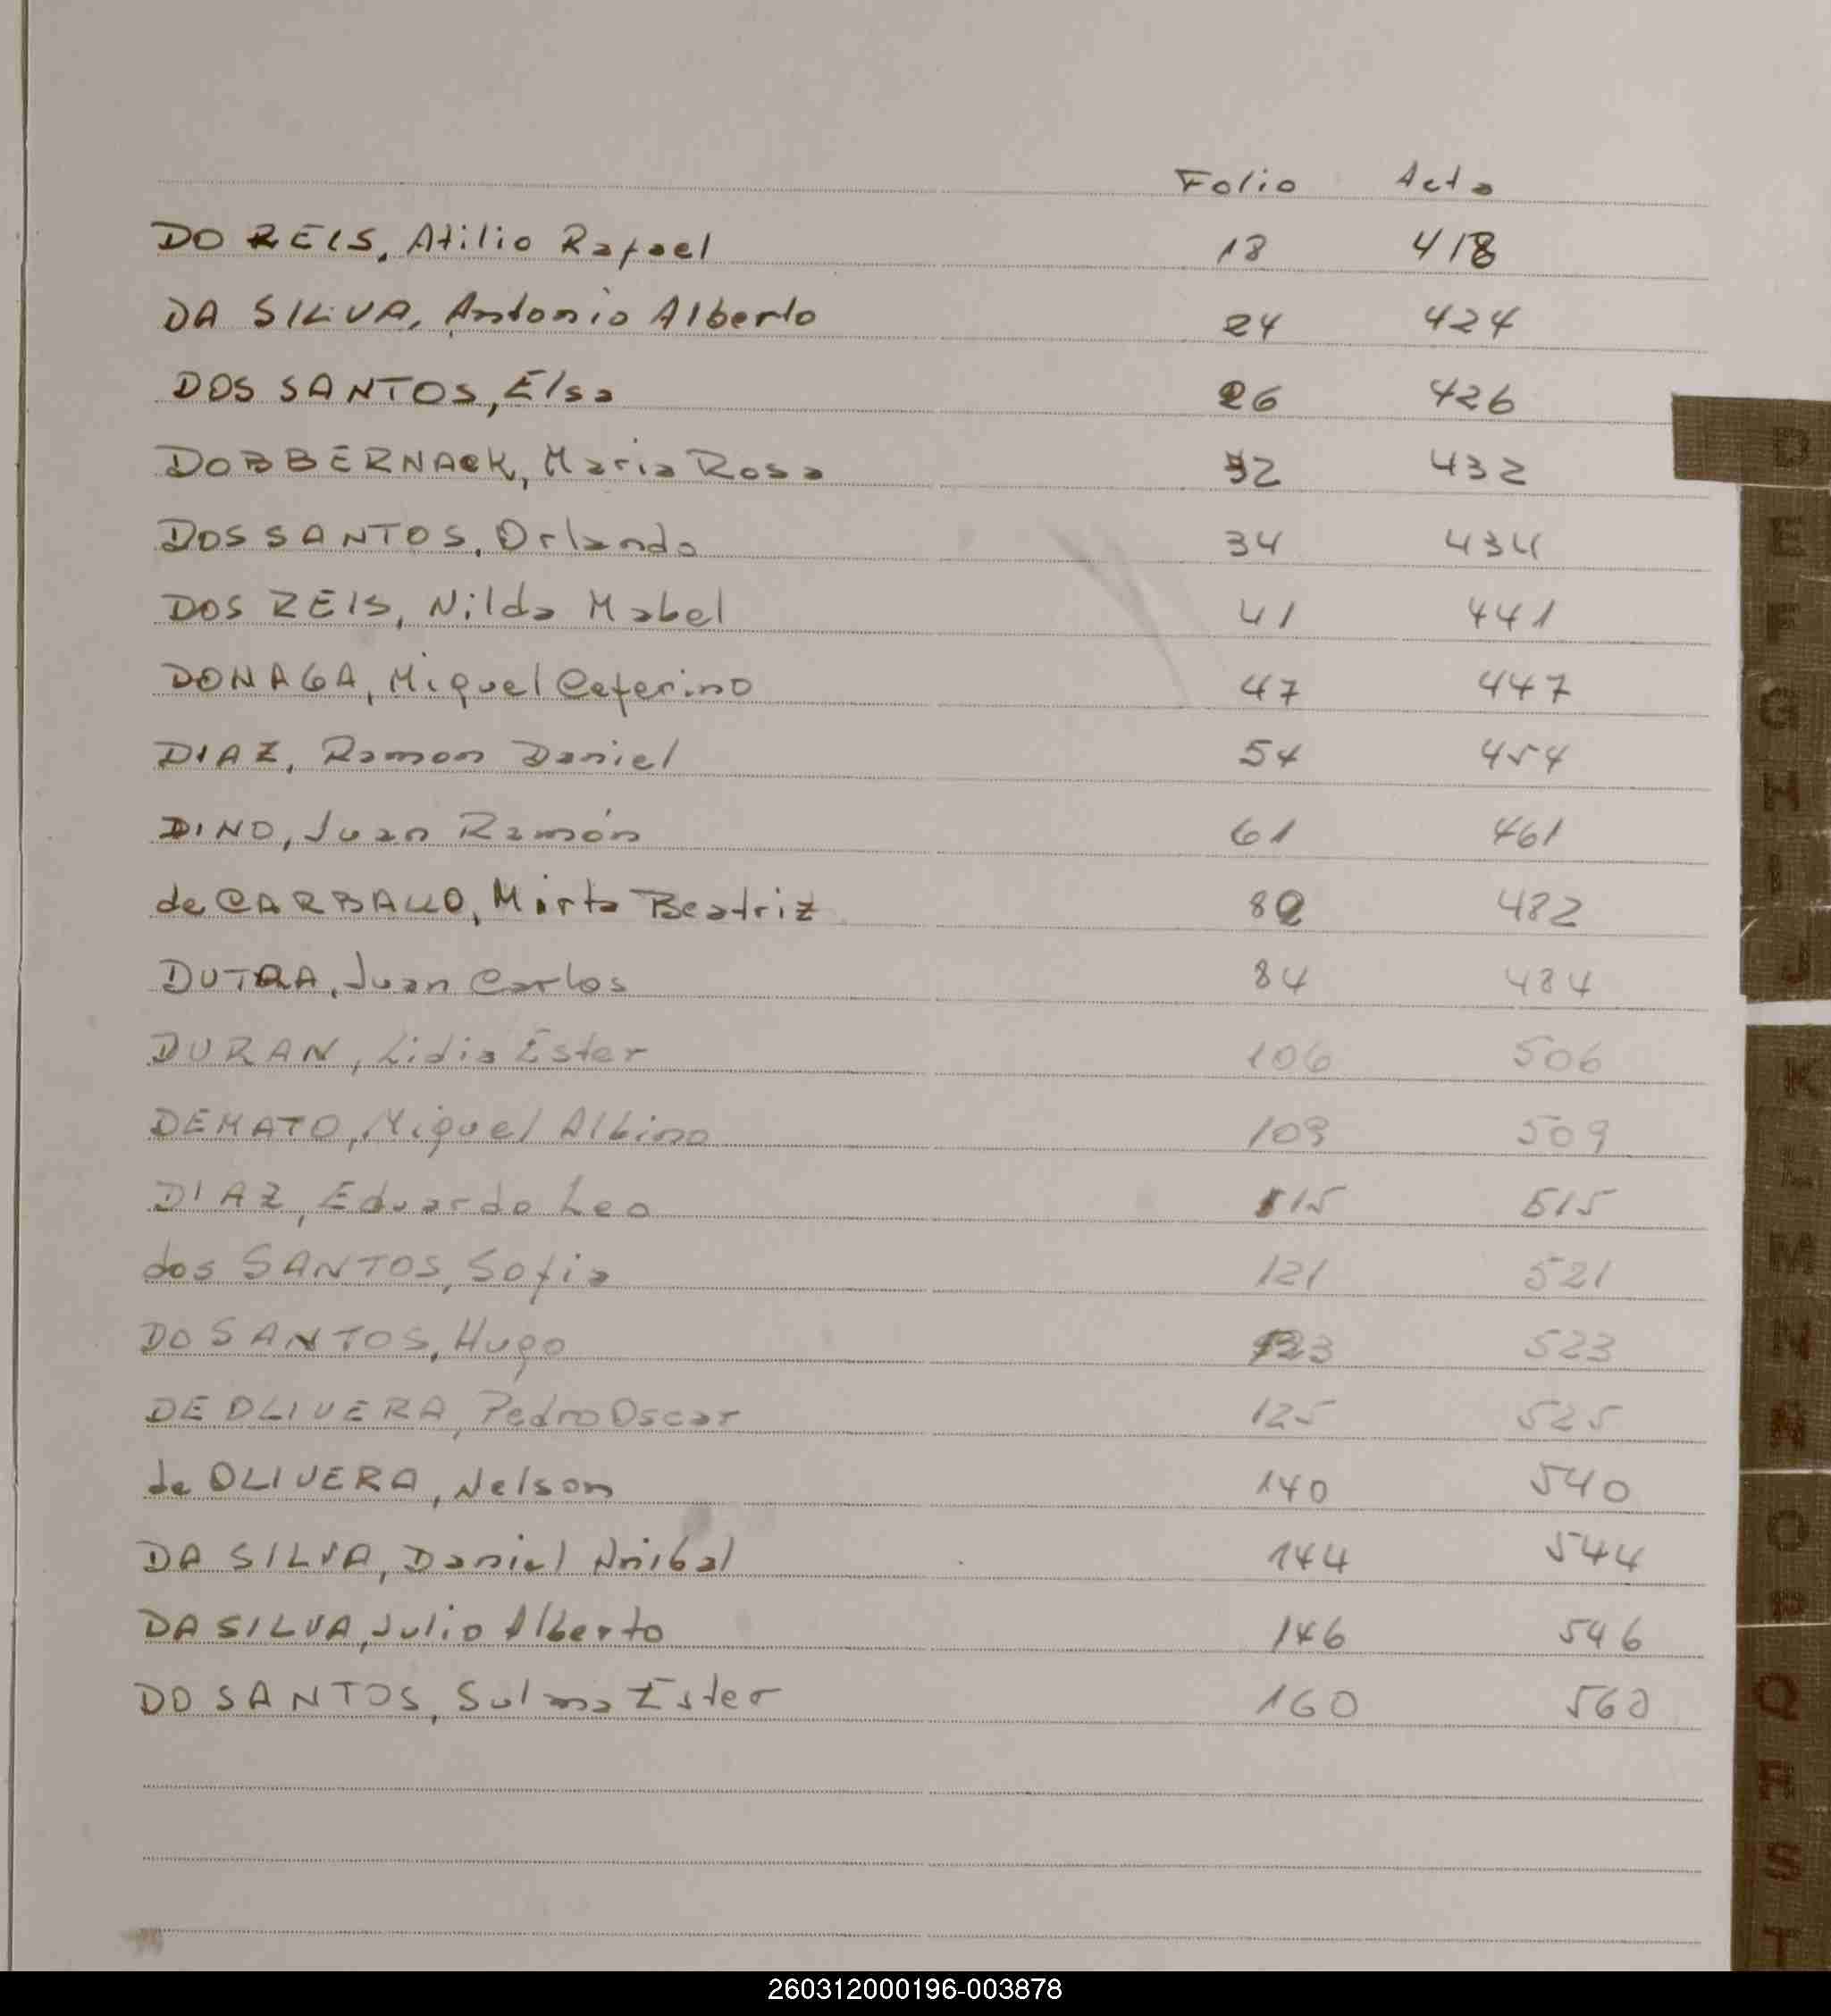 Folio Acta
DO REIS, Atilio Rafael 18 418
DA SILVA, Antonio Alberto 24 424
DOS SANTOS, Elsa 26 426
DOBBERNACK, Maria Rosa 32 432
DOS SANTOS, Orlando 34 434
DOS REIS, Nilda Mabel 41 441
DONAGA, Miguel Ceferino 47 447
DIAZ, Ramon Daniel 54 454
DINO, Juan Ramón 61 461
de CARBALLO, Mirta Beatriz 82 482
DUTRA, Juan Carlos 84 484
DURAN, Lidia Ester 106 506
DEMATO, Miguel Albino 109 509
DIAZ, Eduardo Leo 115 515
dos SANTOS, Sofia 121 521
DO SANTOS, Hugo 123 523
DE OLIVERA, Pedro Oscar 125 525
de OLIVERA, Nelson 140 540
DA SILVA, Daniel Anibal 144 544
DA SILVA, Julio Alberto 146 546
DO SANTOS, Sulma Ester 160 560
D
E
F
G
H
I
J
K
L
M
N
Ñ
O
P
Q
R
S
T
260312000196-003878